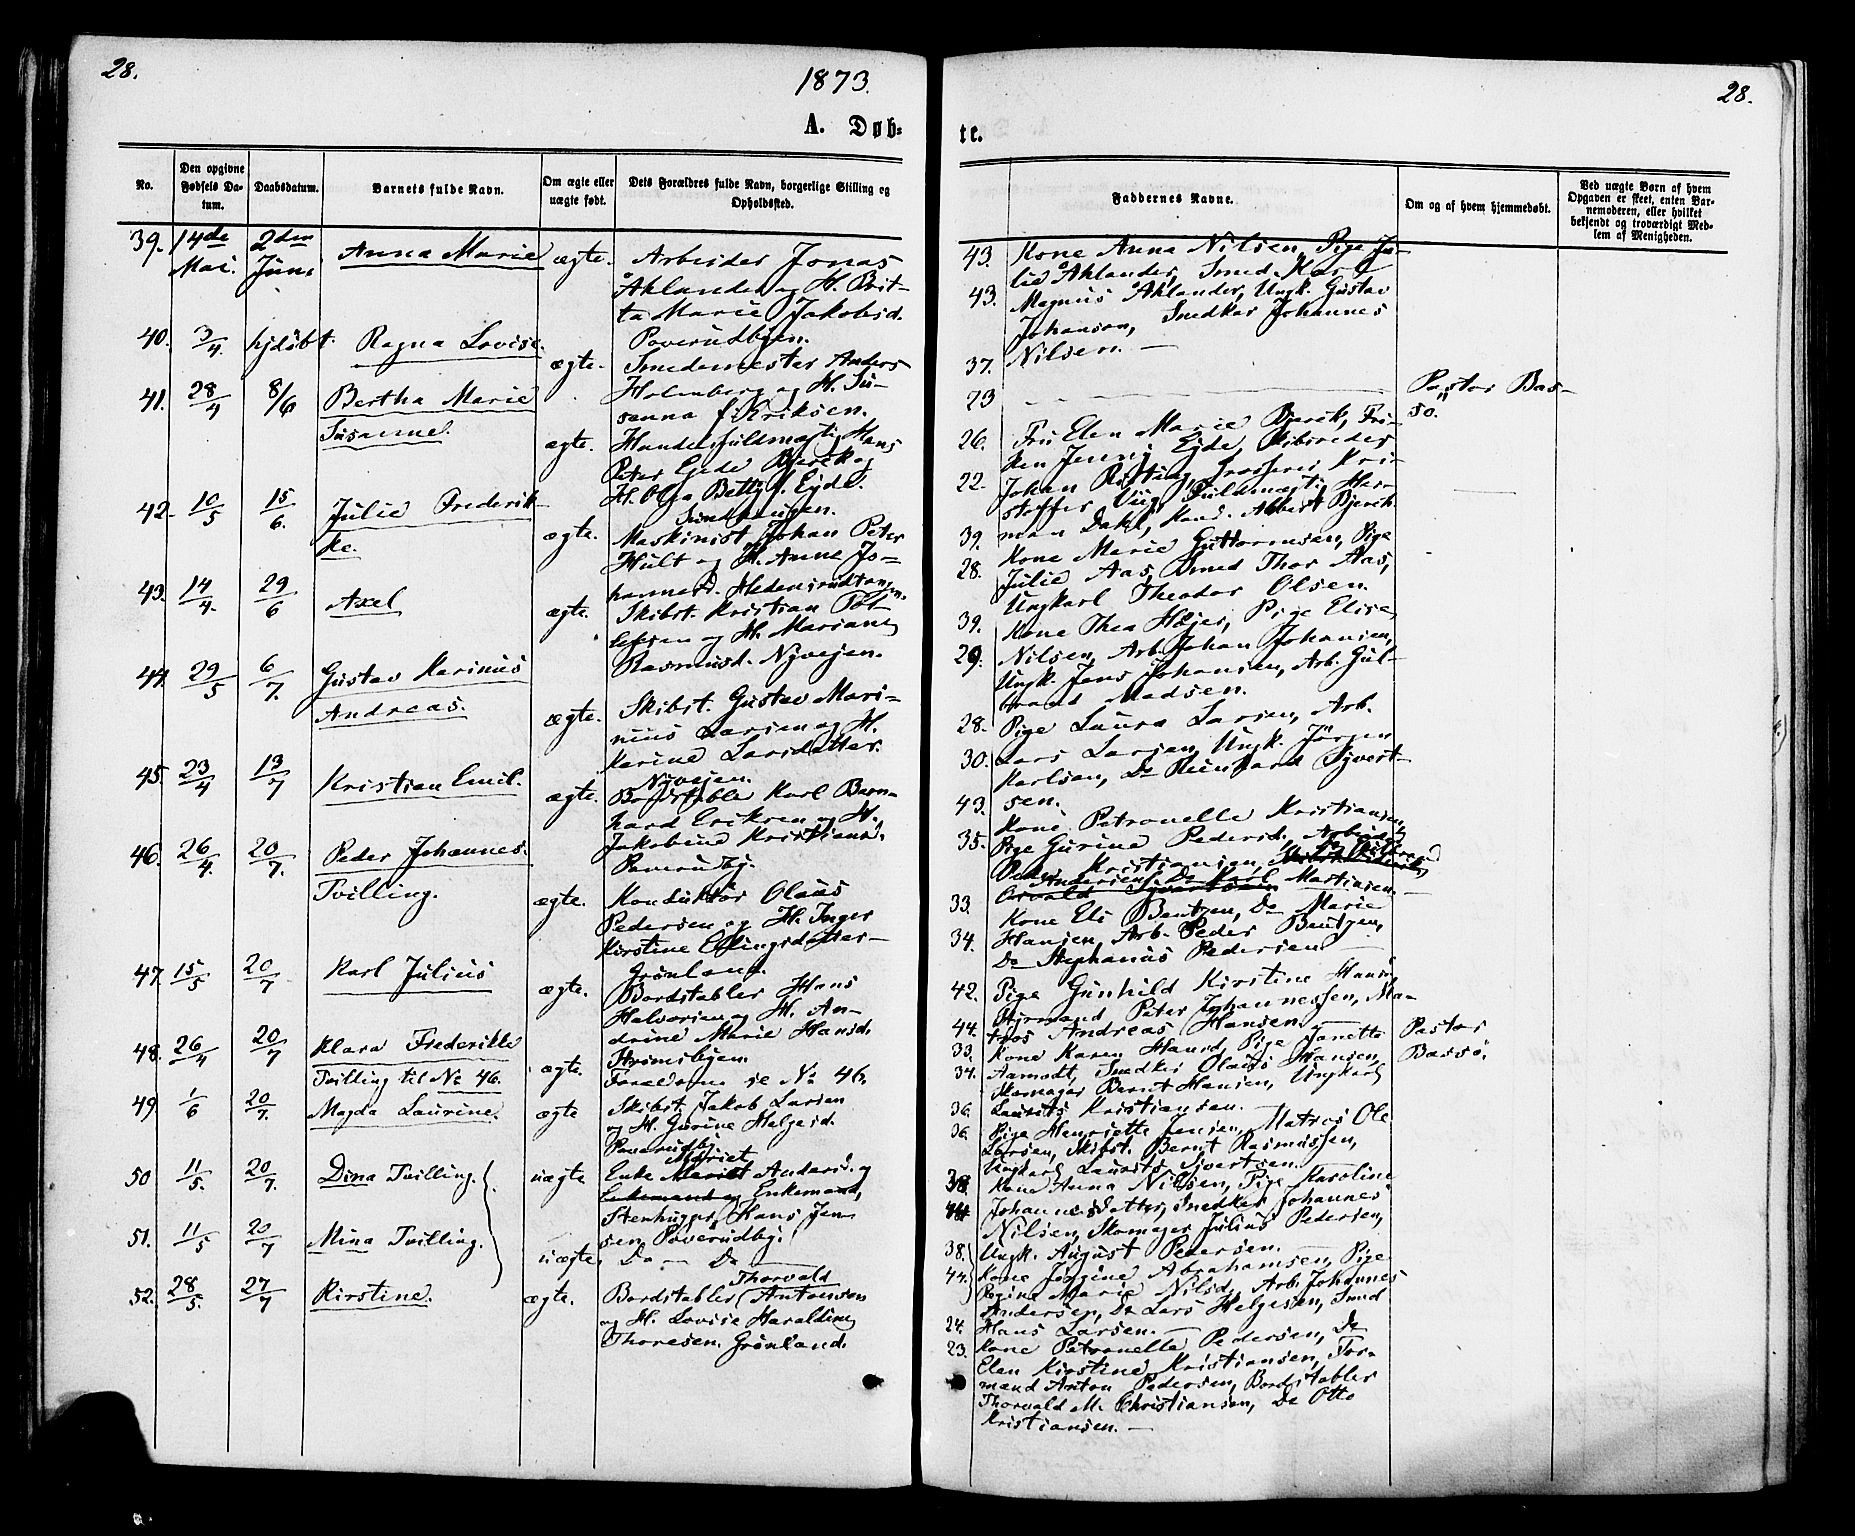 28.
1873.
A. Døb-
No.
Den opgivne Fødsels Da-tum.
Daabsdatum.
Barnets fulde Navn.
Om ægte eller uægte født.
Dets Forældres fulde Navn, borgerlige Stilling og Opholdssted.
39. 14de Mai. 2den Juni Anna Marie ægte. Arbeider Jonas
Åhlander og H. Brit-
ta Marie Jakobsd.
Poverudbyen.
40. 3/4. hjdöbt. Ragna Lovise. ægte. Smedemester Anders
Holmberg og H. Su-
sanna f. Eriksen.
41. 28/4 8/6 Bertha Marie
Susanne. ægte. Handelsfuldmægtig Hans
Peter Gjede Bjerck og
H. Olga Betty f. Eyde.
42. 10/5 15/6. Julie Frederik-
ke. ægte. Maskinist Johan Peter
Hult og H. Anna Jo-
hannesd.
43. 14/4. 29/6 Axel ægte. Skibst. Kristian
og H. Mariane
Rasmusd. Nyvejen.
44. 29/5 6/7. Gustav Marinus
Andreas. ægte. Skibst. Gustav Mari-
nius Larsen og H.
Karine Larsdatter.
Nyvejen.
45. 23/4 13/7 Kristian Emil. ægte. Bordstabler Karl Barn-
hard Eriksen og H.
Jakobine Kristiansd.
Poverudbj.
46. 26/4. 20/7. Peder Johannes.
Tvilling. ægte. Konduktör Olaus
Pedersen og H. Inger
Kirstine Ellingsdatter
Grönland.
47. 15/5 20/7 Karl Julius ægte. Bordstabler Hans
Halvorsen og H. An-
drine Marie Hansd.
Strömsbyen
48. 26/4 20/7 Klara Frederikke
Tvilling til No 46. ægte. Forældrene se No 46.
49. 1/6 20/7. Magda Laurine. ægte Skibst. Jakob Larsen
og H. Gurine Helgesd.
Poverudbj.
50 11/5. 20/7. Dina Tvilling. uægte Enke Mariet Andersd. og
Enkemand og Enkemand,
Stenhugger Hans Jen
sen Poverudbj.
51. 11/5 20/7 Mina Tvilling. uægte, Do — Do —
52. 28/5. 27/7 Kirstine. ægte. Bordstabler Thorvald Antonsen
og H. Lovise Haraldine
Thoresen. Grönland.
28.
te.
Faddernes Navne.
Om og af hvem hjemmedøbt.
Ved uægte Børn af hvem Opgaven er skeet, enten Bar-nemoderen, eller hvilket bekjendt og troværdigt Med-lem af Menigheden.
43. Kone Anna Nilsen, Pige Ju-
lie Åhlander, Smed Karl
43. Magnus Åhlander, Ungk. Gustav
Johanson, Snedker Johannes
37. Nilsen. —
23 Pastor Bas-
so.
26. Fru Elen Marie Bjerck, Frö-
ken Jenny Eyde, Skibsreder
22. Johan Rosting, Grosserer Kri-
stoffer Fuldmægtig Her-
39. man Dahl, Kand. Albert Bjerck
28. Kone Marie Guttormsen, Pige
Julie Aas, Smed Thor Aas,
Ungkarl Theodor Olsen.
39. Kone Thea Höjer, Pige Elise
29. Nilsen, Arb. Johan Johansen,
Ungk. Jens Johansen, Arb. Gul-
brand Madsen.
28. Pige Laura Larsen, Arb.
30. Lars Larsen, Ungk. Jörgen
Karlsen, Do Reinhard Syvert-
43. sen.
35. Kone Petronelle Kristiansen,
Pige Gurine Pedersd., Arbeider
Peder Kristiansen,
Andersen, Do Karl Martinsen.
33. Kone Eli Bentzen, Do Marie
34. Hansen, Arb. Peder Bentzen,
Do Stephanus Pedersen
42. Pige Gunhild Kirstine Hansen
Styrmand Peter Johannessen, Ma-
44. tros Andreas Hansen.
33. Kone Karen Hansd, Pige Janette Pastor
34. Aamodt, Snedker Olaus Hansen, Basso.
Skomager Bernt Hansen, Ungkarl
36. Laurits Kristiansen. —
36. Pige Henriette Jensen, Matros Ole
Larsen, Skibst. Bernt Rasmussen,
Ungkarl Laurits Syvertsen. —
38. Kone Anna Nilsen, Pige Karoline
44. Johannesdatter, Snedker Johannes
Nilsen, Skomager Julius Pedersen,
38. Ungk. August Pedersen. —
44. Kone Jörgine Abrahamsen, Pige
Regine Marie Nilsd, Arb. Johannes
Andersen, Do Lars Helgesen, Smed
24. Hans Larsen. —
23. Kone Petronelle Pedersen, Do
Elen Kirstine Kristiansen, For-
mand Anton Pedersen, Bordstabler
Thorvald M. Christiansen, Do Otto
Kristiansen. —